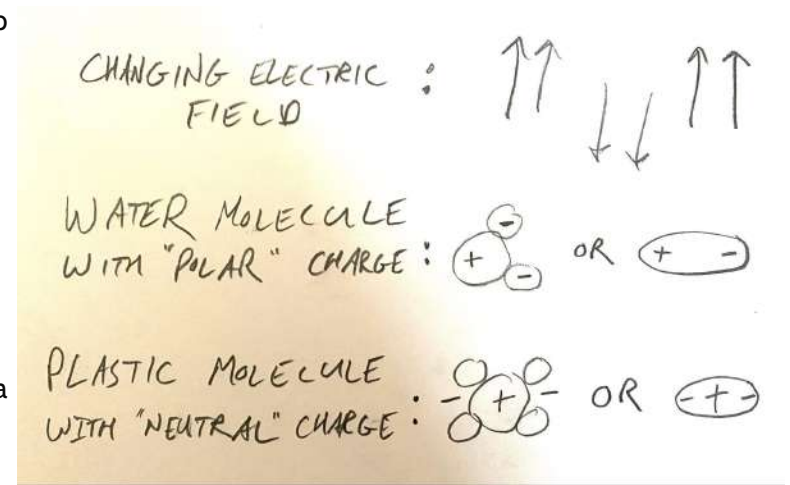 CHANGING ELECTRIC :
FIELD
WATER MOLECULE
WITH "POLAR" CHARGE : + - - OR + -
PLASTIC MOLECULE
WITH "NEUTRAL" CHARGE : - + - OR - + -